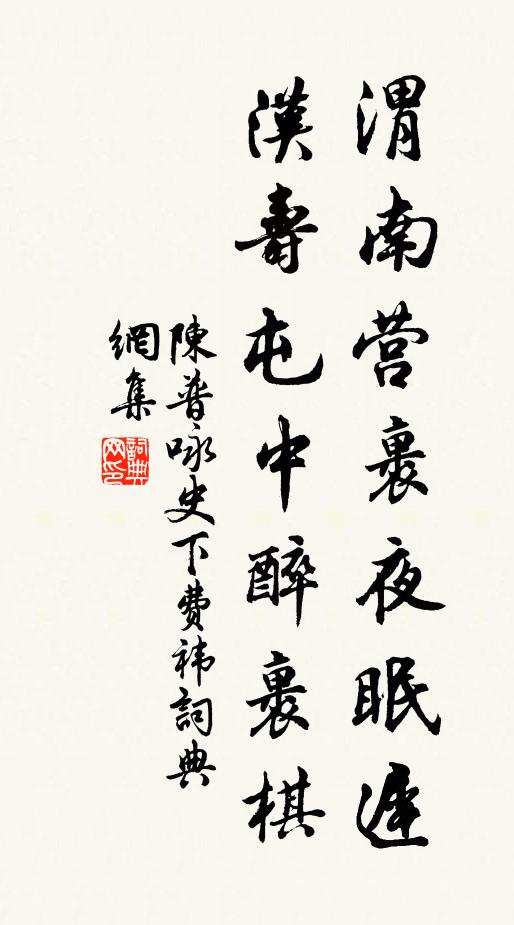 渭南营裏夜眠遲
漢壽屯中醉裏棋
陳普咏史下費禕詞典
網集
詞典
网印